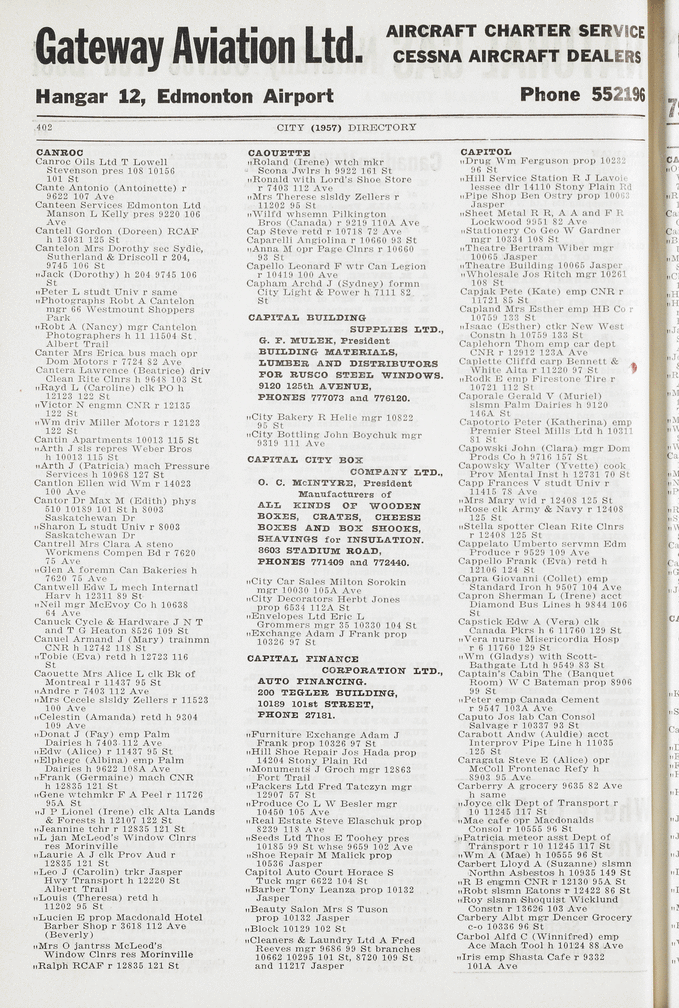 Gateway Aviation Ltd.
AIRCRAFT CHARTER SERVICE
CESSNA AIRCRAFT DEALERS
Hangar 12, Edmonton Airport
Phone 552196
402
CITY (1957) DIRECTORY
CANROC
Canroc Oils Ltd T Lowell
Stevenson pres 108 10156
101 St
Cante Antonio (Antoinette) r
9622 107 Ave
Canteen Services Edmonton Ltd
Manson L Kelly pres 9220 106
Ave
Cantell Gordon (Doreen) RCAF
h 13031 125 St
Cantelon Mrs Dorothy sec Sydie,
Sutherland & Driscoll r 204,
9745 106 St
"Jack (Dorothy) h 204 9745 106
St
"Peter L studt Univ r same
"Photographs Robt A Cantelon
mgr 66 Westmount Shoppers
Park
"Robt A (Nancy) mgr Cantelon
Photographers h 11 11504 St
Albert Trail
Canter Mrs Erica bus mach opr
Dom Motors r 7724 82 Ave
Cantera Lawrence (Beatrice) driv
Clean Rite Clnrs h 9648 103 St
"Rayd L (Caroline) clk PO h
12123 122 St
"Victor N engmn CNR r 12135
122 St
"Wm driv Miller Motors r 12123
122 St
Cantin Apartments 10013 115 St
"Arth J sls repres Weber Bros
h 10013 115 St
"Arth J (Patricia) mach Pressure
Services h 10968 127 St
Cantlon Ellen wid Wm r 14023
100 Ave
Cantor Dr Max M (Edith) phys
510 10189 101 St h 8003
Saskatchewan Dr
"Sharon L studt Univ r 8003
Saskatchewan Dr
Cantrell Mrs Clara A steno
Workmens Compen Bd r 7620
75 Ave
"Glen A foremn Can Bakeries h
7620 75 Ave
Cantwell Edw L mech Internatl
Harv h 12311 89 St
"Neil mgr McEvoy Co h 10638
64 Ave
Canuck Cycle & Hardware J N T
and T G Heaton 8526 109 St
Canuel Armand J (Mary) trainmn
CNR h 12742 118 St
"Tobie (Eva) retd h 12723 116
St
Caouette Mrs Alice L clk Bk of
Montreal r 11437 95 St
"Andre r 7403 112 Ave
"Mrs Cecele slsldy Zellers r 11523
100 Ave
"Celestin (Amanda) retd h 9304
109 Ave
"Donat J (Fay) emp Palm
Dairies h 7403 112 Ave
"Edw (Alice) r 11437 95 St
"Elphege (Albina) emp Palm
Dairies h 9622 108A Ave
"Frank (Germaine) mach CNR
h 12835 121 St
"Gene wtchmkr F A Peel r 11726
95A St
"J P Lionel (Irene) clk Alta Lands
& Forests h 12107 122 St
"Jeannine tchr r 12835 121 St
"L jan McLeod's Window Clnrs
res Morinville
"Laurie A J clk Prov Aud r
12835 121 St
"Leo J (Carolin) trkr Jasper
Hwy Transport h 12220 St
Albert Trail
"Louis (Theresa) retd h
11202 95 St
"Lucien E prop Macdonald Hotel
Barber Shop r 3618 112 Ave
(Beverly)
"Mrs O jantrss McLeod's
Window Clnrs res Morinville
"Ralph RCAF r 12835 121 St
CAOUETTE
"Roland (Irene) wtch mkr
Scona Jwlrs h 9922 161 St
"Ronald with Lord's Shoe Store
r 7403 112 Ave
"Mrs Therese slsldy Zellers r
11202 95 St
"Wilfd whsemn Pilkington
Bros (Canada) r 9219 110A Ave
Cap Steve retd r 10718 72 Ave
Caparelli Angiolina r 10660 93 St
"Anna M opr Page Clnrs r 10660
93 St
Capello Leonard F wtr Can Legion
r 10419 100 Ave
Capham Archd J (Sydney) formn
City Light & Power h 7111 82
St
CAPITAL BUILDING
SUPPLIES LTD.,
G. F. MULEK, President
BUILDING MATERIALS,
LUMBER AND DISTRIBUTORS
FOR RUSCO STEEL WINDOWS.
9120 125th AVENUE,
PHONES 777073 and 776120.
"City Bakery R Helie mgr 10822
95 St
"City Bottling John Boychuk mgr
9319 111 Ave
CAPITAL CITY BOX
COMPANY LTD.,
O. C. McINTYRE, President
Manufacturers of
ALL KINDS OF WOODEN
BOXES, CRATES, CHEESE
BOXES AND BOX SHOOKS,
SHAVINGS for INSULATION.
8603 STADIUM ROAD,
PHONES 771409 and 772440.
"City Car Sales Milton Sorokin
mgr 10030 105A Ave
"City Decorators Herbt Jones
prop 6534 112A St
"Envelopes Ltd Eric L
Grommers mgr 35 10330 104 St
"Exchange Adam J Frank prop
10326 97 St
CAPITAL FINANCE
CORPORATION LTD.,
AUTO FINANCING.
200 TEGLER BUILDING,
10189 101st STREET,
PHONE 27181.
"Furniture Exchange Adam J
Frank prop 10326 97 St
"Hill Shoe Repair Jos Hada prop
14204 Stony Plain Rd
"Monuments J Groch mgr 12863
Fort Trail
"Packers Ltd Fred Tatczyn mgr
12907 57 St
"Produce Co L W Besler mgr
10450 105 Ave
"Real Estate Steve Elaschuk prop
8239 118 Ave
"Seeds Ltd Thos E Toohey pres
10185 99 St whse 9659 102 Ave
"Shoe Repair M Malick prop
10536 Jasper
Capitol Auto Court Horace S
Tuck mgr 6622 104 St
"Barber Tony Leanza prop 10132
Jasper
"Beauty Salon Mrs S Tuson
prop 10132 Jasper
"Block 10129 102 St
"Cleaners & Laundry Ltd A Fred
Reeves mgr 9686 99 St branches
10662 10295 101 St, 8720 109 St
and 11217 Jasper
CAPITOL
"Drug Wm Ferguson prop 10232
96 St
"Hill Service Station R J Lavoie
lessee dlr 14110 Stony Plain Rd
"Pipe Shop Ben Ostry prop 10063
Jasper
"Sheet Metal R R, A A and F R
Lockwood 9951 82 Ave
"Stationery Co Geo W Gardner
mgr 10334 108 St
"Theatre Bertram Wiber mgr
10065 Jasper
"Theatre Building 10065 Jasper
"Wholesale Jos Ritch mgr 10261
108 St
Capjak Pete (Kate) emp CNR r
11721 85 St
Capland Mrs Esther emp HB Co r
10759 133 St
"Isaac (Esther) ctkr New West
Constn h 10759 133 St
Caplehorn Thom emp car dept
CNR r 12912 123A Ave
Caplette Cliffd carp Bennett &
White Alta r 11220 97 St
"Rodk E emp Firestone Tire r
10721 112 St
Caporale Gerald V (Muriel)
slsmn Palm Dairies h 9120
146A St
Capotorto Peter (Katherina) emp
Premier Steel Mills Ltd h 10311
81 St
Capowski John (Clara) mgr Dom
Prods Co h 9716 157 St
Capowsky Walter (Yvette) cook
Prov Mental Inst h 12731 70 St
Capp Frances V studt Univ r
11415 78 Ave
"Mrs Mary wid r 12408 125 St
"Rose clk Army & Navy r 12408
125 St
"Stella spotter Clean Rite Clnrs
r 12408 125 St
Cappelato Umberto servmn Edm
Produce r 9529 109 Ave
Cappello Frank (Eva) retd h
12106 124 St
Capra Giovanni (Collet) emp
Standard Iron h 9507 104 Ave
Capron Sherman L (Irene) acct
Diamond Bus Lines h 9844 106
St
Capstick Edw A (Vera) clk
Canada Pkrs h 6 11760 129 St
"Vera nurse Misericordia Hosp
r 6 11760 129 St
"Wm (Gladys) with Scott-
Bathgate Ltd h 9549 83 St
Captain's Cabin The (Banquet
Room) W C Bateman prop 8906
99 St
"Peter emp Canada Cement
r 9547 103A Ave
Caputo Jos lab Can Consol
Salvage r 10337 93 St
Carabott Andw (Auldie) acct
Interprov Pipe Line h 11035
125 St
Caragata Steve E (Alice) opr
McColl Frontenac Refy h
8903 95 Ave
Carberry A grocery 9635 82 Ave
h same
"Joyce clk Dept of Transport r
10 11245 117 St
"Mae cafe opr Macdonalds
Consol r 10555 96 St
"Patricia meteor asst Dept of
Transport r 10 11245 117 St
"Wm A (Mae) h 10555 96 St
Carbert Lloyd A (Suzanne) slsmn
Northn Asbestos h 10935 149 St
"R B engmn CNR r 12130 95A St
"Robt slsmn Eatons r 12422 86 St
"Roy slsmn Shoquist Wicklund
Constn r 13626 103 Ave
Carbery Albt mgr Dencer Grocery
c-o 10336 96 St
Carbol Alfd C (Winnifred) emp
Ace Mach Tool h 10124 88 Ave
"Iris emp Shasta Cafe r 9332
101A Ave